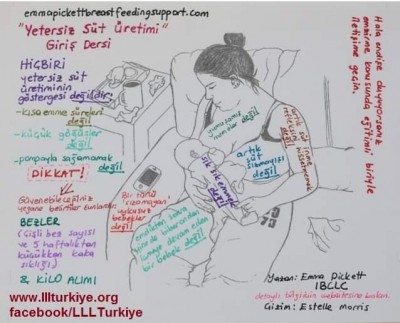 emmapickettbreastfeedingsupport.com
"Yetersiz Süt Üretimi"
Giriş Dersi
HİÇBİRİ
yetersiz süt
üretiminin
göstergesi değildir!
-kısa emme süreleri
değil
-küçük göğüsler
değil
-pompayla sağamamak
değil
DİKKAT!
Güvenebileceğiniz
yegane belirtiler bunlardır:
BEZLER
(Çişli bez sayısı
ve 5 haftalıktan
küçükken kaka
sıklığı)
& KİLO ALIMI
Bir türlü
uykusuz
bebekler
değil
yumuşamış
memeler değil
artık süt inme
refleksini
hissetmemek
değil
artık
süt
sızmayışı
değil
sık sık emmek
değil
emdikten sonra
devam eden
bir bebek değil
Hala endişe duyuyorsanız
emzirme konusunda eğitimli biriyle
iletişime geçin.
Yazan: Emma Pickett
IBCLC
detaylı bilgi için websitesine bakın.
Çizim: Estelle Morris
www.lllturkiye.org
facebook/LLLTurkiye